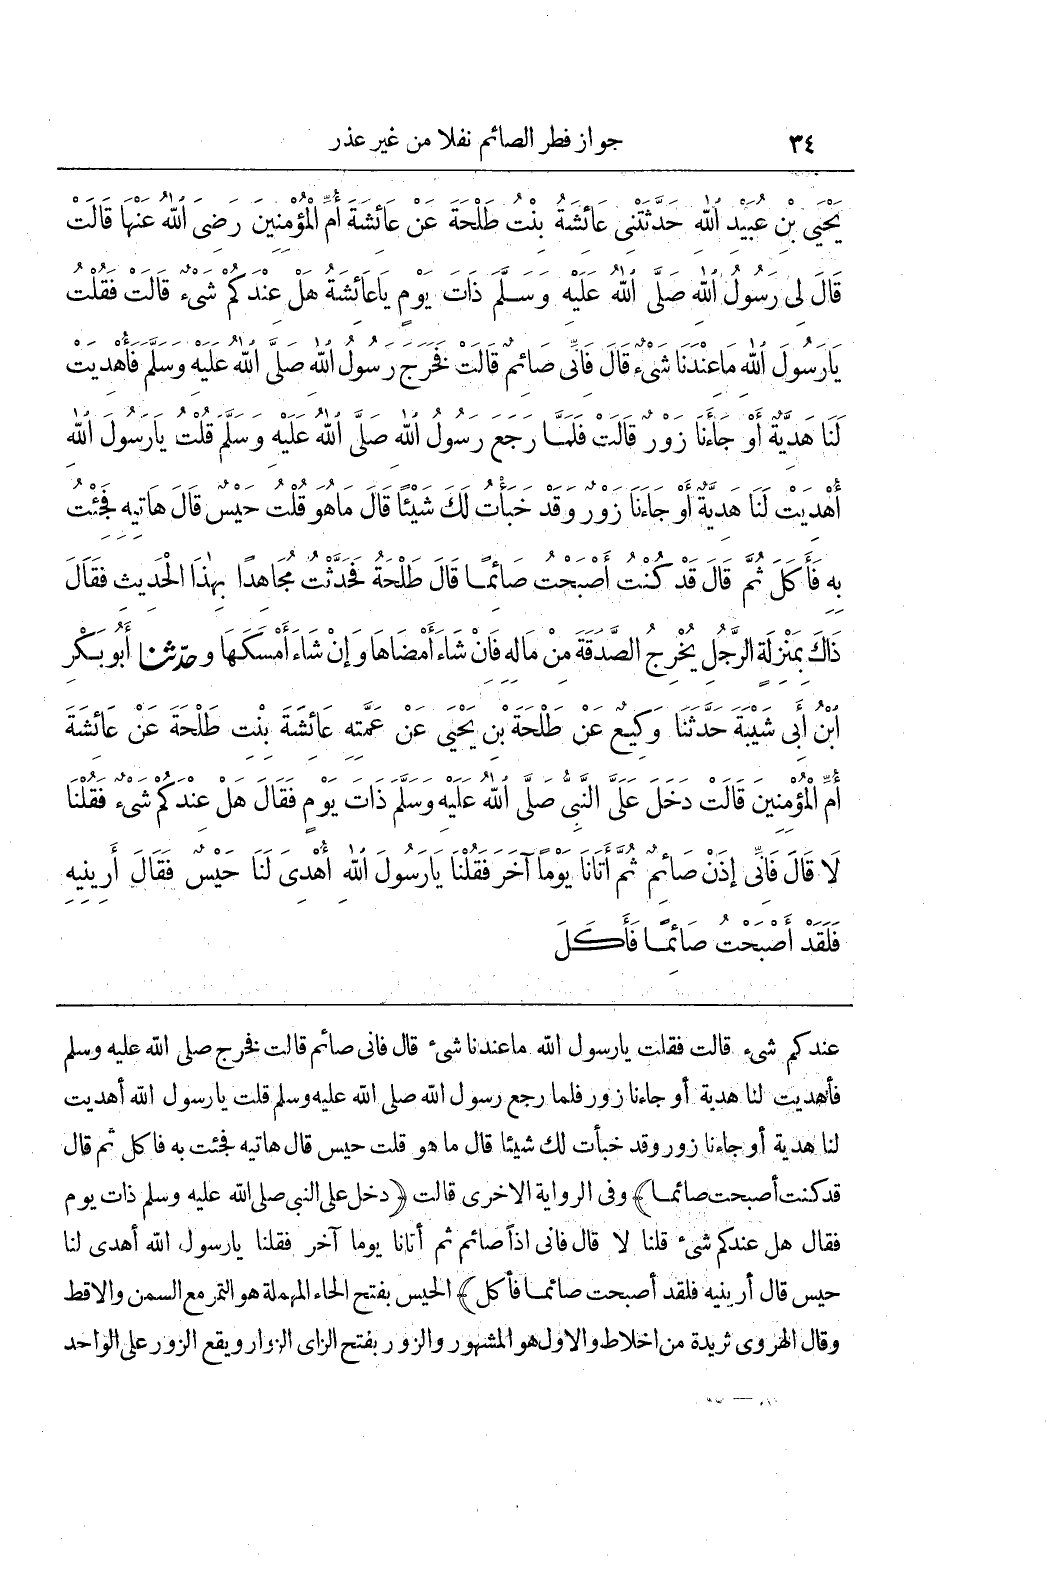 ٣٤ جواز فطر الصائم نفلا من غير عذر
يَحْيَى بْنِ عُبَيْدِ اللهِ حَدَّثَتْنِي عَائِشَةُ بِنْتُ طَلْحَةَ عَنْ عَائِشَةَ أُمِّ الْمُؤْمِنِينَ رَضِيَ اللهُ عَنْهَا قَالَتْ
قَالَ لِي رَسُولُ اللهِ صَلَّى اللهُ عَلَيْهِ وَسَلَّمَ ذَاتَ يَوْمٍ يَاعَائِشَةُ هَلْ عِنْدَكُمْ شَيْءٌ قَالَتْ فَقُلْتُ
يَارَسُولَ اللهِ مَاعِنْدَنَا شَيْءٌ قَالَ فَإِنِّي صَائِمٌ قَالَتْ فَخَرَجَ رَسُولُ اللهِ صَلَّى اللهُ عَلَيْهِ وَسَلَّمَ فَأُهْدِيَتْ
لَنَا هَدِيَّةٌ أَوْ جَاءَنَا زَوْرٌ قَالَتْ فَلَمَّا رَجَعَ رَسُولُ اللهِ صَلَّى اللهُ عَلَيْهِ وَسَلَّمَ قُلْتُ يَارَسُولَ اللهِ
أُهْدِيَتْ لَنَا هَدِيَّةٌ أَوْ جَاءَنَا زَوْرٌ وَقَدْ خَبَأْتُ لَكَ شَيْئًا قَالَ مَاهُوَ قُلْتُ حَيْسٌ قَالَ هَاتِيهِ فَجِئْتُ
بِهِ فَأَكَلَ ثُمَّ قَالَ قَدْ كُنْتُ أَصْبَحْتُ صَائِمًا قَالَ طَلْحَةُ فَحَدَّثْتُ مُجَاهِدًا بِهٰذَا الْحَدِيثِ فَقَالَ
ذَاكَ بِمَنْزِلَةِ الرَّجُلِ يُخْرِجُ الصَّدَقَةَ مِنْ مَالِهِ فَإِنْ شَاءَ أَمْضَاهَا وَإِنْ شَاءَ أَمْسَكَهَا وحدثنا أَبُو بَكْرِ
ابْنُ أَبِي شَيْبَةَ حَدَّثَنَا وَكِيعٌ عَنْ طَلْحَةَ بْنِ يَحْيَى عَنْ عَمَّتِهِ عَائِشَةَ بِنْتِ طَلْحَةَ عَنْ عَائِشَةَ
أُمِّ الْمُؤْمِنِينَ قَالَتْ دَخَلَ عَلَيَّ النَّبِيُّ صَلَّى اللهُ عَلَيْهِ وَسَلَّمَ ذَاتَ يَوْمٍ فَقَالَ هَلْ عِنْدَكُمْ شَيْءٌ فَقُلْنَا
لَا قَالَ فَإِنِّي إِذَنْ صَائِمٌ ثُمَّ أَتَانَا يَوْمًا آخَرَ فَقُلْنَا يَارَسُولَ اللهِ أُهْدِيَ لَنَا حَيْسٌ فَقَالَ أَرِينِيهِ
فَلَقَدْ أَصْبَحْتُ صَائِمًا فَأَكَلَ
عندكم شىء قالت فقلت يارسول الله ماعندنا شىء قال فانى صائم قالت فخرج صلى الله عليه وسلم
فأهديت لنا هدية أو جاءنا زور فلما رجع رسول الله صلى الله عليه وسلم قلت يارسول الله أهديت
لنا هدية أو جاءنا زور وقد خبأت لك شيئا قال ما هو قلت حيس قال هاتيه فجئت به فاكل ثم قال
قد كنت أصبحت صائما﴾ وفى الرواية الاخرى قالت ﴿دخل على النبى صلى الله عليه وسلم ذات يوم
فقال هل عندكم شىء قلنا لا قال فانى اذاً صائم ثم أتانا يوما آخر فقلنا يارسول الله أهدى لنا
حيس قال أرينيه فلقد أصبحت صائما فأكل﴾ الحيس بفتح الحاء المهملة هو التمر مع السمن والاقط
وقال الهروى ثريدة من اخلاط والاول هو المشهور والزور بفتح الزاى الزوار ويقع الزور على الواحد